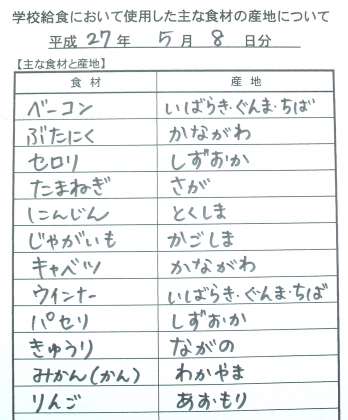 学校給食において使用した主な食材の産地について
平成 27 年 5 月 8 日分
【主な食材と産地】
食材 産地
ベーコン いばらき・ぐんま・ちば
ぶたにく かながわ
セロリ しずおか
たまねぎ さが
にんじん とくしま
じゃがいも かごしま
キャベツ かながわ
ウインナー いばらき・ぐんま・ちば
パセリ しずおか
きゅうり ながの
みかん(かん) わかやま
りんご あおもり